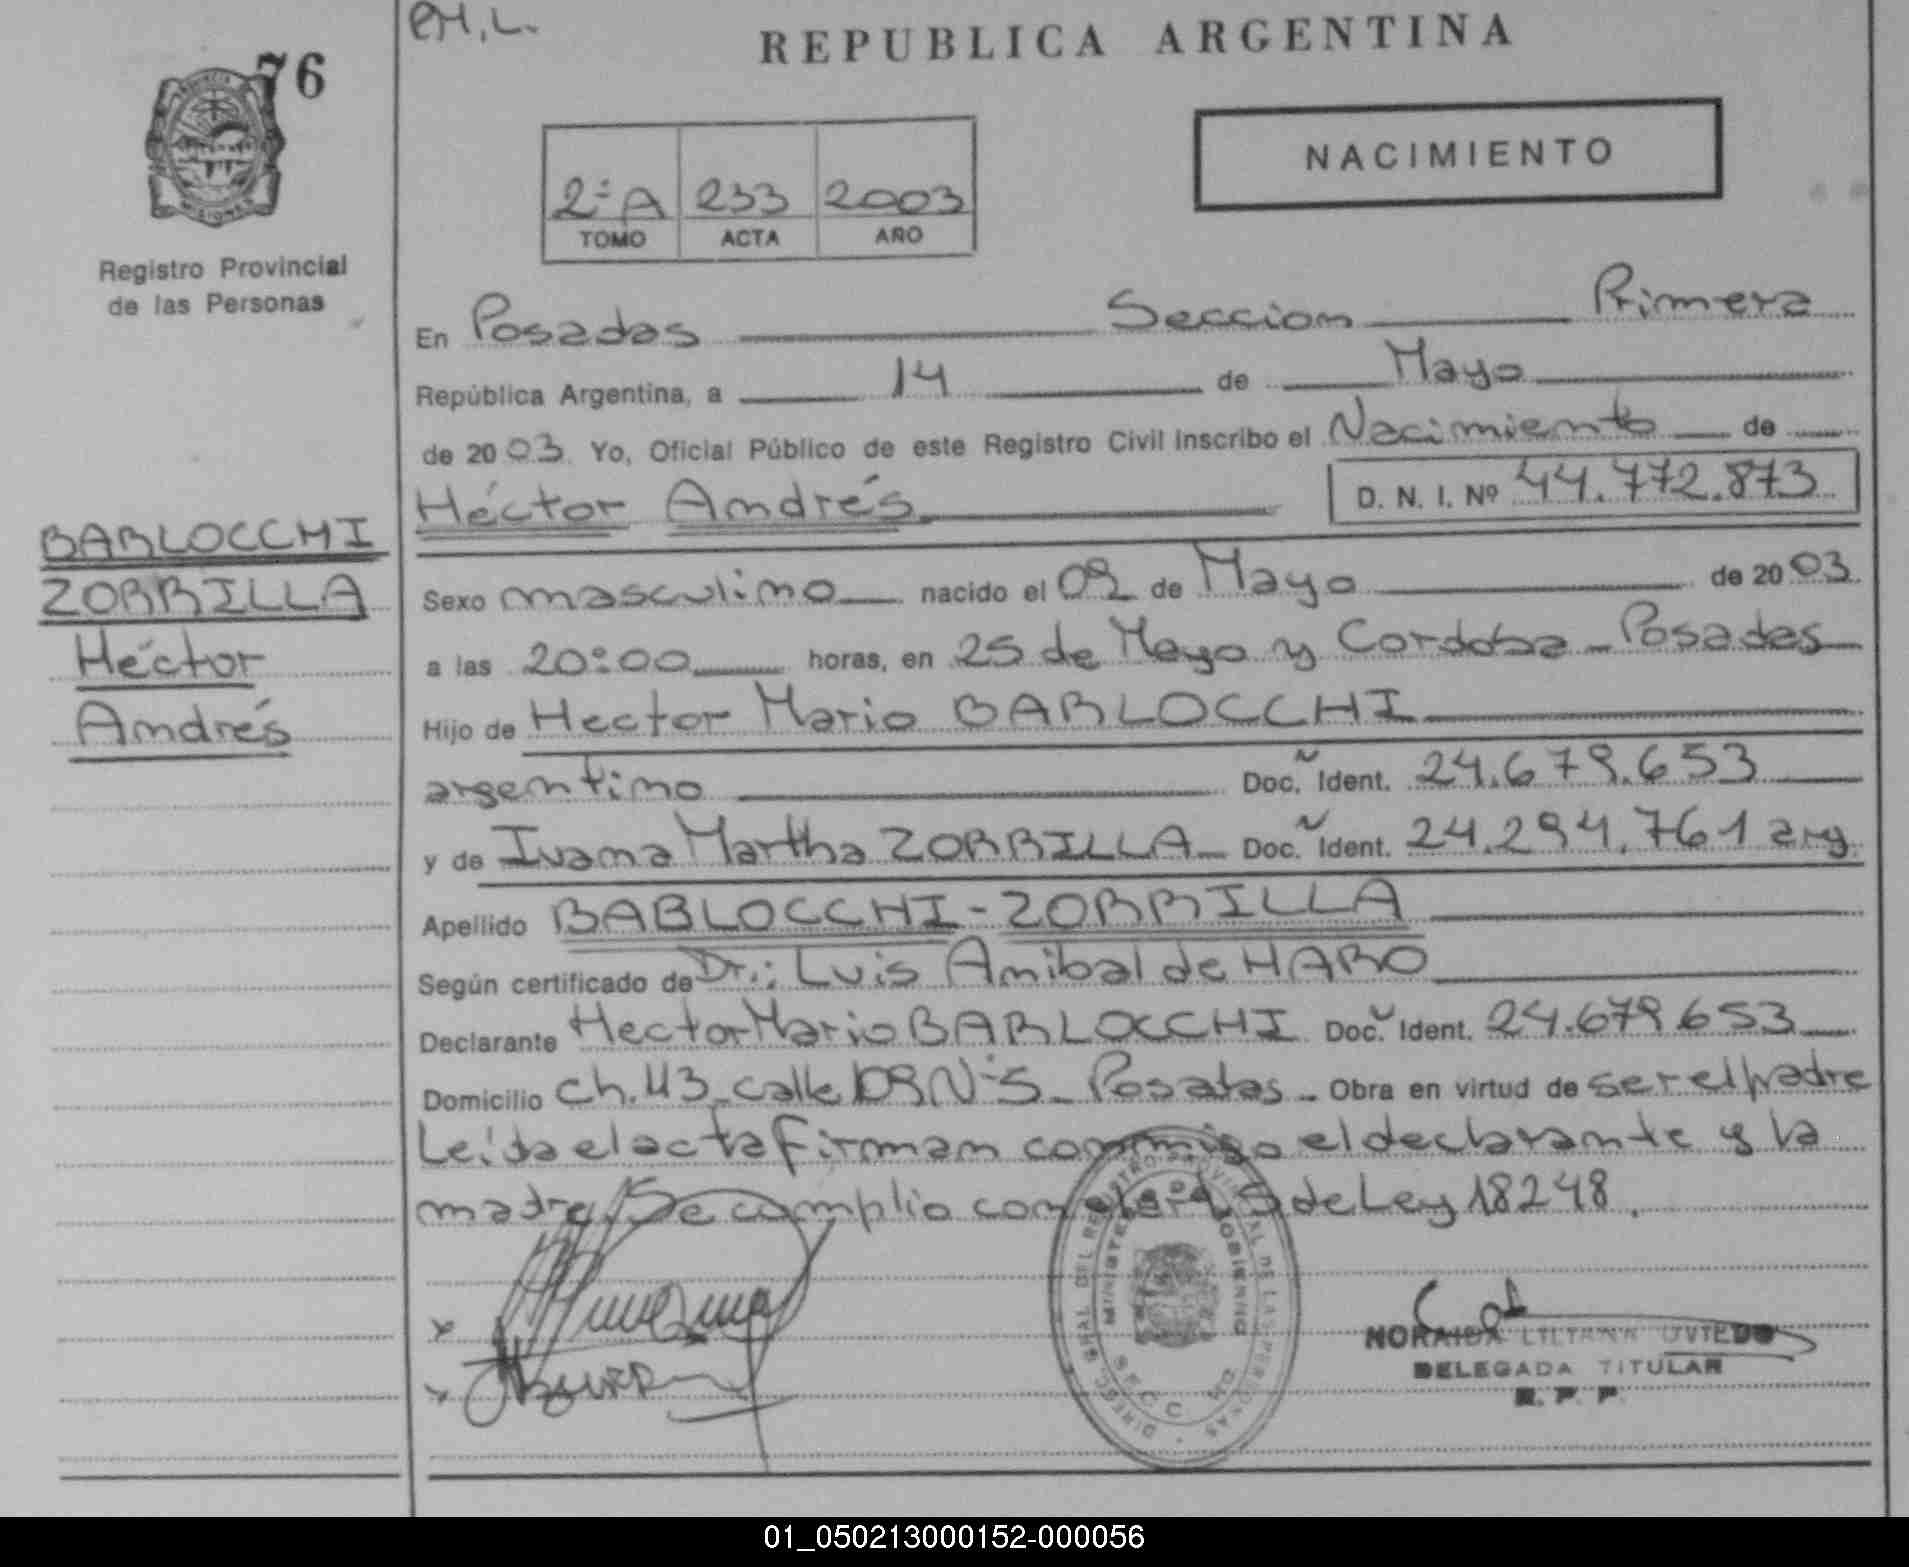 CH.L.
REPUBLICA ARGENTINA
76
PROVINCIA
MISIONES
Registro Provincial
de las Personas
2ª A 233 2003
TOMO ACTA AÑO
NACIMIENTO
En Posadas Seccion Primera
República Argentina, a 14 de Mayo
de 2003. Yo, Oficial Público de este Registro Civil Inscribo el Nacimiento de
Héctor Andrés. D. N. I. Nº 44.772.873
BABLOCCHI
ZORRILLA
Héctor
Andrés
Sexo masculino nacido el 09 de Mayo de 2003.
a las 20:00 horas, en 25 de Mayo y Cordoba - Posadas
Hijo de Hector Mario BABLOCCHI
argentino Doc. Ident. 24.679.653
y de Ivana Martha ZORRILLA Doc. Ident. 24.294.761 arg.
Apellido BABLOCCHI - ZORRILLA
Según certificado de Dr.: Luis Anibal de HARO
Declarante Hector Mario BABLOCCHI Doc. Ident. 24.679.653
Domicilio Ch. 43 - calle Nº 5 - Posadas - Obra en virtud de ser el padre
Leída el acta firman conmigo el declarante y la
madre. Se cumplio con el art 5 de Ley 18248.
NORAIDA LILIANA OVIEDO
DELEGADA TITULAR
R. P. P.
01_050213000152-000056